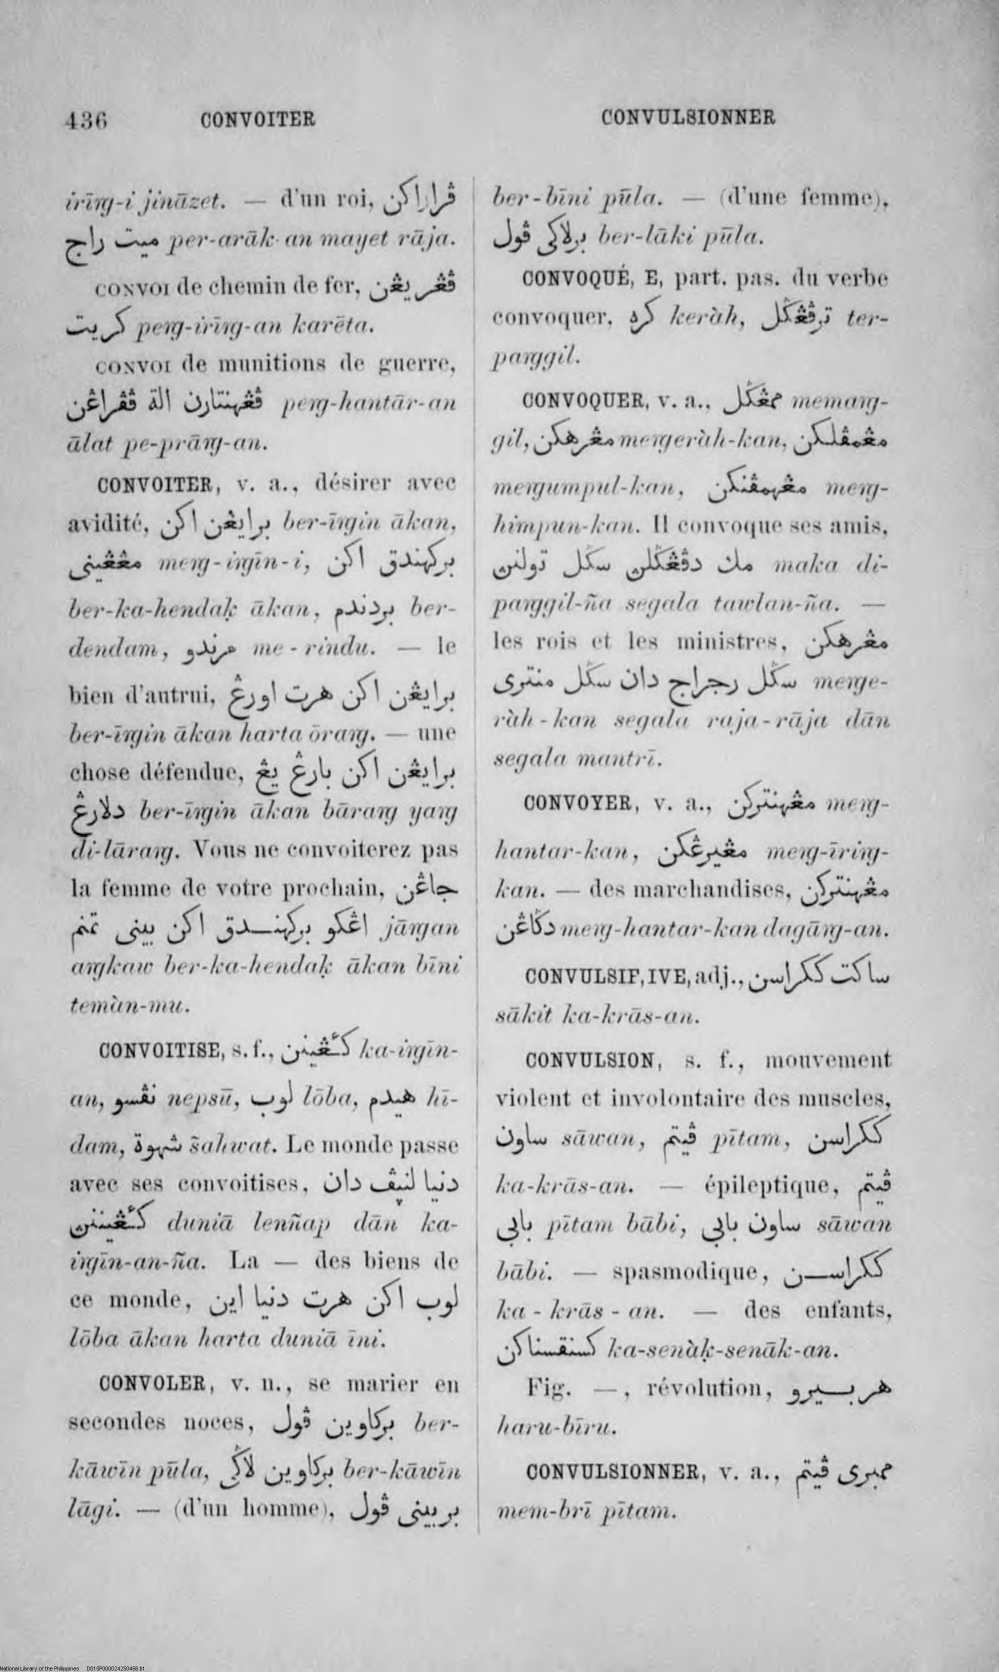 436 CONVOITER CONVULSIONNER
iring-i jināzet. — d'un roi, ڤراراكن
ميت راج per-arāk-an mayet rāja.
CONVOI de chemin de fer, ڤڠيريڠن
كريت peng-īring-an karēta.
CONVOI de munitions de guerre,
ڤڠهنتارن الة ڤڤراڠن peng-hantār-an
ālat pe-prāng-an.
CONVOITER, v. a., désirer avec
avidité, برايڠن اكن ber-īngin ākan,
مڠڠيني meng-ingīn-i, بركهندق اكن
ber-ka-hendaḳ ākan, بردندم ber-
dendam, مرندو me-rindu. — le
bien d'autrui, برايڠن اكن هرت اورڠ
ber-īngin ākan harta ōrang. — une
chose défendue, برايڠن اكن بارڠ يڠ
دلارڠ ber-īngin ākan bārang yang
di-lārang. Vous ne convoiterez pas
la femme de votre prochain, جاڠن
اڠكو بركهندق اكن بيني تمنم jāngan
angkaw ber-ka-hendaḳ ākan bīni
temàn-mu.
CONVOITISE, s. f., كاڠينن ka-ingīn-
an, نڤسو nepsū, لوب lōba, هيدم hī-
dam, شهوة šahwat. Le monde passe
avec ses convoitises, دنيا لنڽڤ دان
كاڠيننڽ duniā lenñap dān ka-
ingīn-an-ña. La — des biens de
ce monde, لوب اكن هرت دنيا اين
lōba ākan harta duniā īni.
CONVOLER, v. n., se marier en
secondes noces, بركاوين ڤول ber-
kāwīn pūla, بركاوين لاݢي ber-kāwīn
lāgi. — (d'un homme), بربيني ڤول
ber-bīni pūla. — (d'une femme),
برلاكي ڤول ber-lāki pūla.
CONVOQUÉ, E, part. pas. du verbe
convoquer, كره keràh, ترڤڠݢل ter-
panggil.
CONVOQUER, v. a., ممڠݢل memang-
gil, مڠرهكن mengeràh-kan, مڠمڤلكن
mengumpul-kan, مڠهمڤنكن meng-
himpun-kan. Il convoque ses amis,
مك دڤڠݢلن سݢل تولنن maka di-
panggil-ña segala tawlan-ña. —
les rois et les ministres, مڠرهكن
سݢل رجراج دان سݢل منتري menge-
ràh-kan segala raja-rāja dān
segala mantrī.
CONVOYER, v. a., مڠهنتركن meng-
hantar-kan, مڠيرڠكن meng-īring-
kan. — des marchandises, مڠهنتركن
دݢاڠن meng-hantar-kan dagāng-an.
CONVULSIF, IVE, adj., ساكت ككراسن
sākit ka-krās-an.
CONVULSION, s. f., mouvement
violent et involontaire des muscles,
ساون sāwan, ڤيتم pītam, ككراسن
ka-krās-an. — épileptique, ڤيتم
بابي pītam bābi, ساون بابي sāwan
bābi. — spasmodique, ككراسن
ka-krās-an. — des enfants,
كسنقسناكن ka-senàḳ-senāk-an.
Fig. —, révolution, هربيرو
haru-bīru.
CONVULSIONNER, v. a., ممبري ڤيتم
mem-brī pītam.
National Library of the Philippines